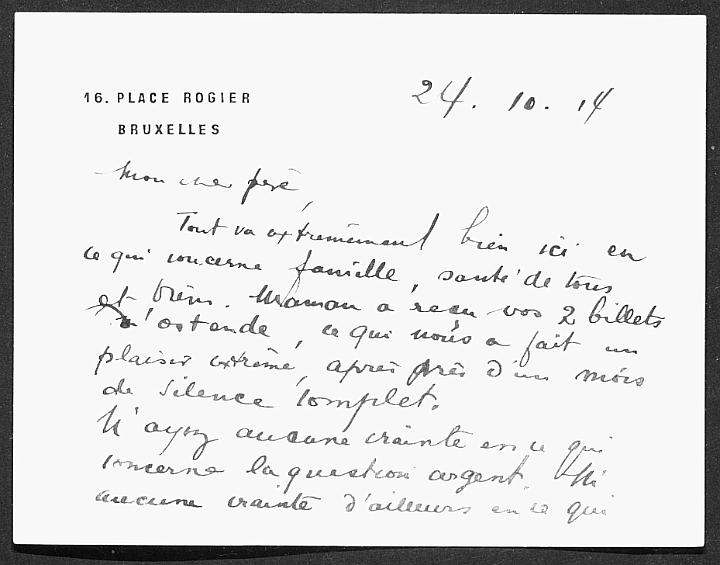 16. PLACE ROGIER
BRUXELLES
24. 10. 14
Mon cher père,
Tout va extrêmement bien ici en
ce qui concerne famille, santé de tous
et biens. Maman a reçu vos 2 billets
d'ostende, ce qui nous a fait un
plaisir extrême, après près d'un mois
de silence complet.
N'ayez aucune crainte en ce qui
concerne la question argent. Ni
aucune crainte d'ailleurs en ce qui